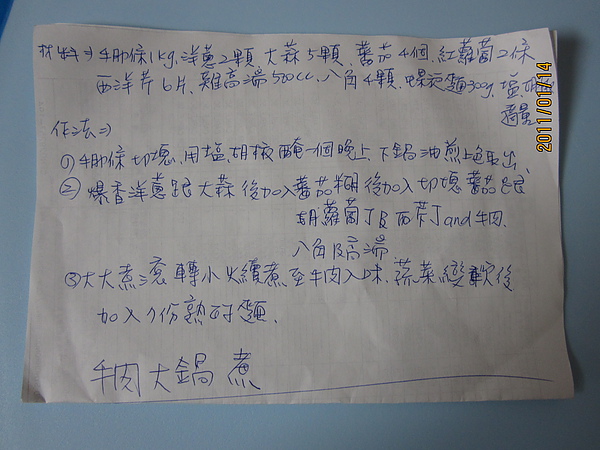 材料=>牛腩條1kg.洋蔥2顆 大蒜5顆 蕃茄4個.紅蘿蔔2條
西洋芹6片.雞高湯500cc.八角4顆.螺旋麵300g.鹽.胡椒
適量
作法=>
①牛腩條切塊.用鹽.胡椒醃一個晚上.下鍋油煎上色取出.
②爆香洋蔥跟大蒜後加入蕃茄糊後加入切塊蕃茄跟
胡蘿蔔丁跟西芹丁and牛肉.
八角高湯
③大火煮滾後轉小火續煮.至牛肉入味 蔬菜變軟後
加入
牛肉大鍋煮
2011/01/14